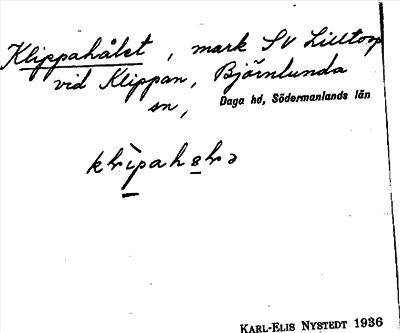 Klippahålet, mark SV Lilltorp
vid Klippan, Björnlunda
sn, Daga hd, Södermanlands län
KARL-ELIS NYSTEDT 1936